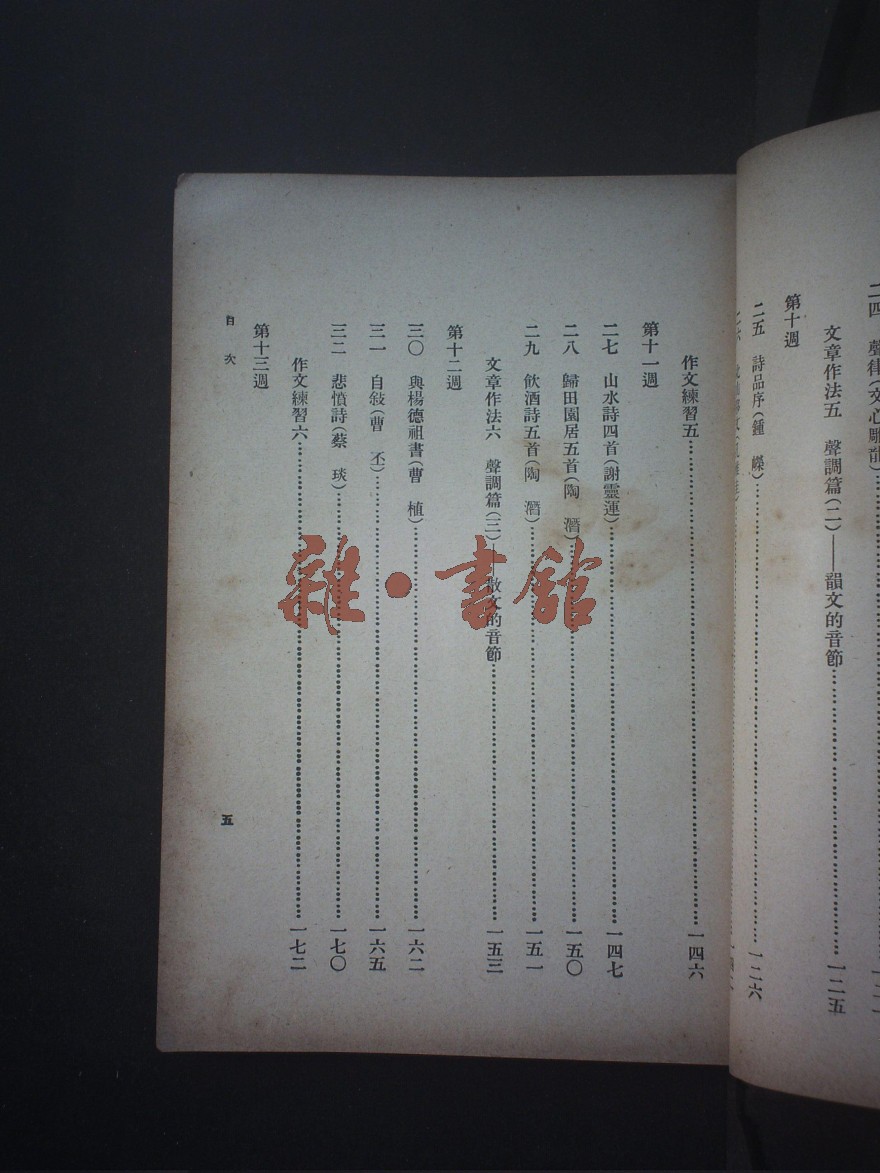 二四　聲律(文心雕龍)
文章作法五　聲調篇(二)——韻文的音節……一二五
第十週
二五　詩品序(鍾　嶸)……一二六
二六
作文練習五……一四六
第十一週
二七　山水詩四首(謝靈運)……一四七
二八　歸田園居五首(陶　潛)……一五〇
二九　飲酒詩五首(陶　潛)……一五一
文章作法六　聲調篇(三)——散文的音節……一五三
第十二週
三〇　與楊德祖書(曹　植)……一六二
三一　自敍(曹　丕)……一六五
三二　悲憤詩(蔡　琰)……一七〇
作文練習六……一七二
第十三週
目　次
五
雜·書館